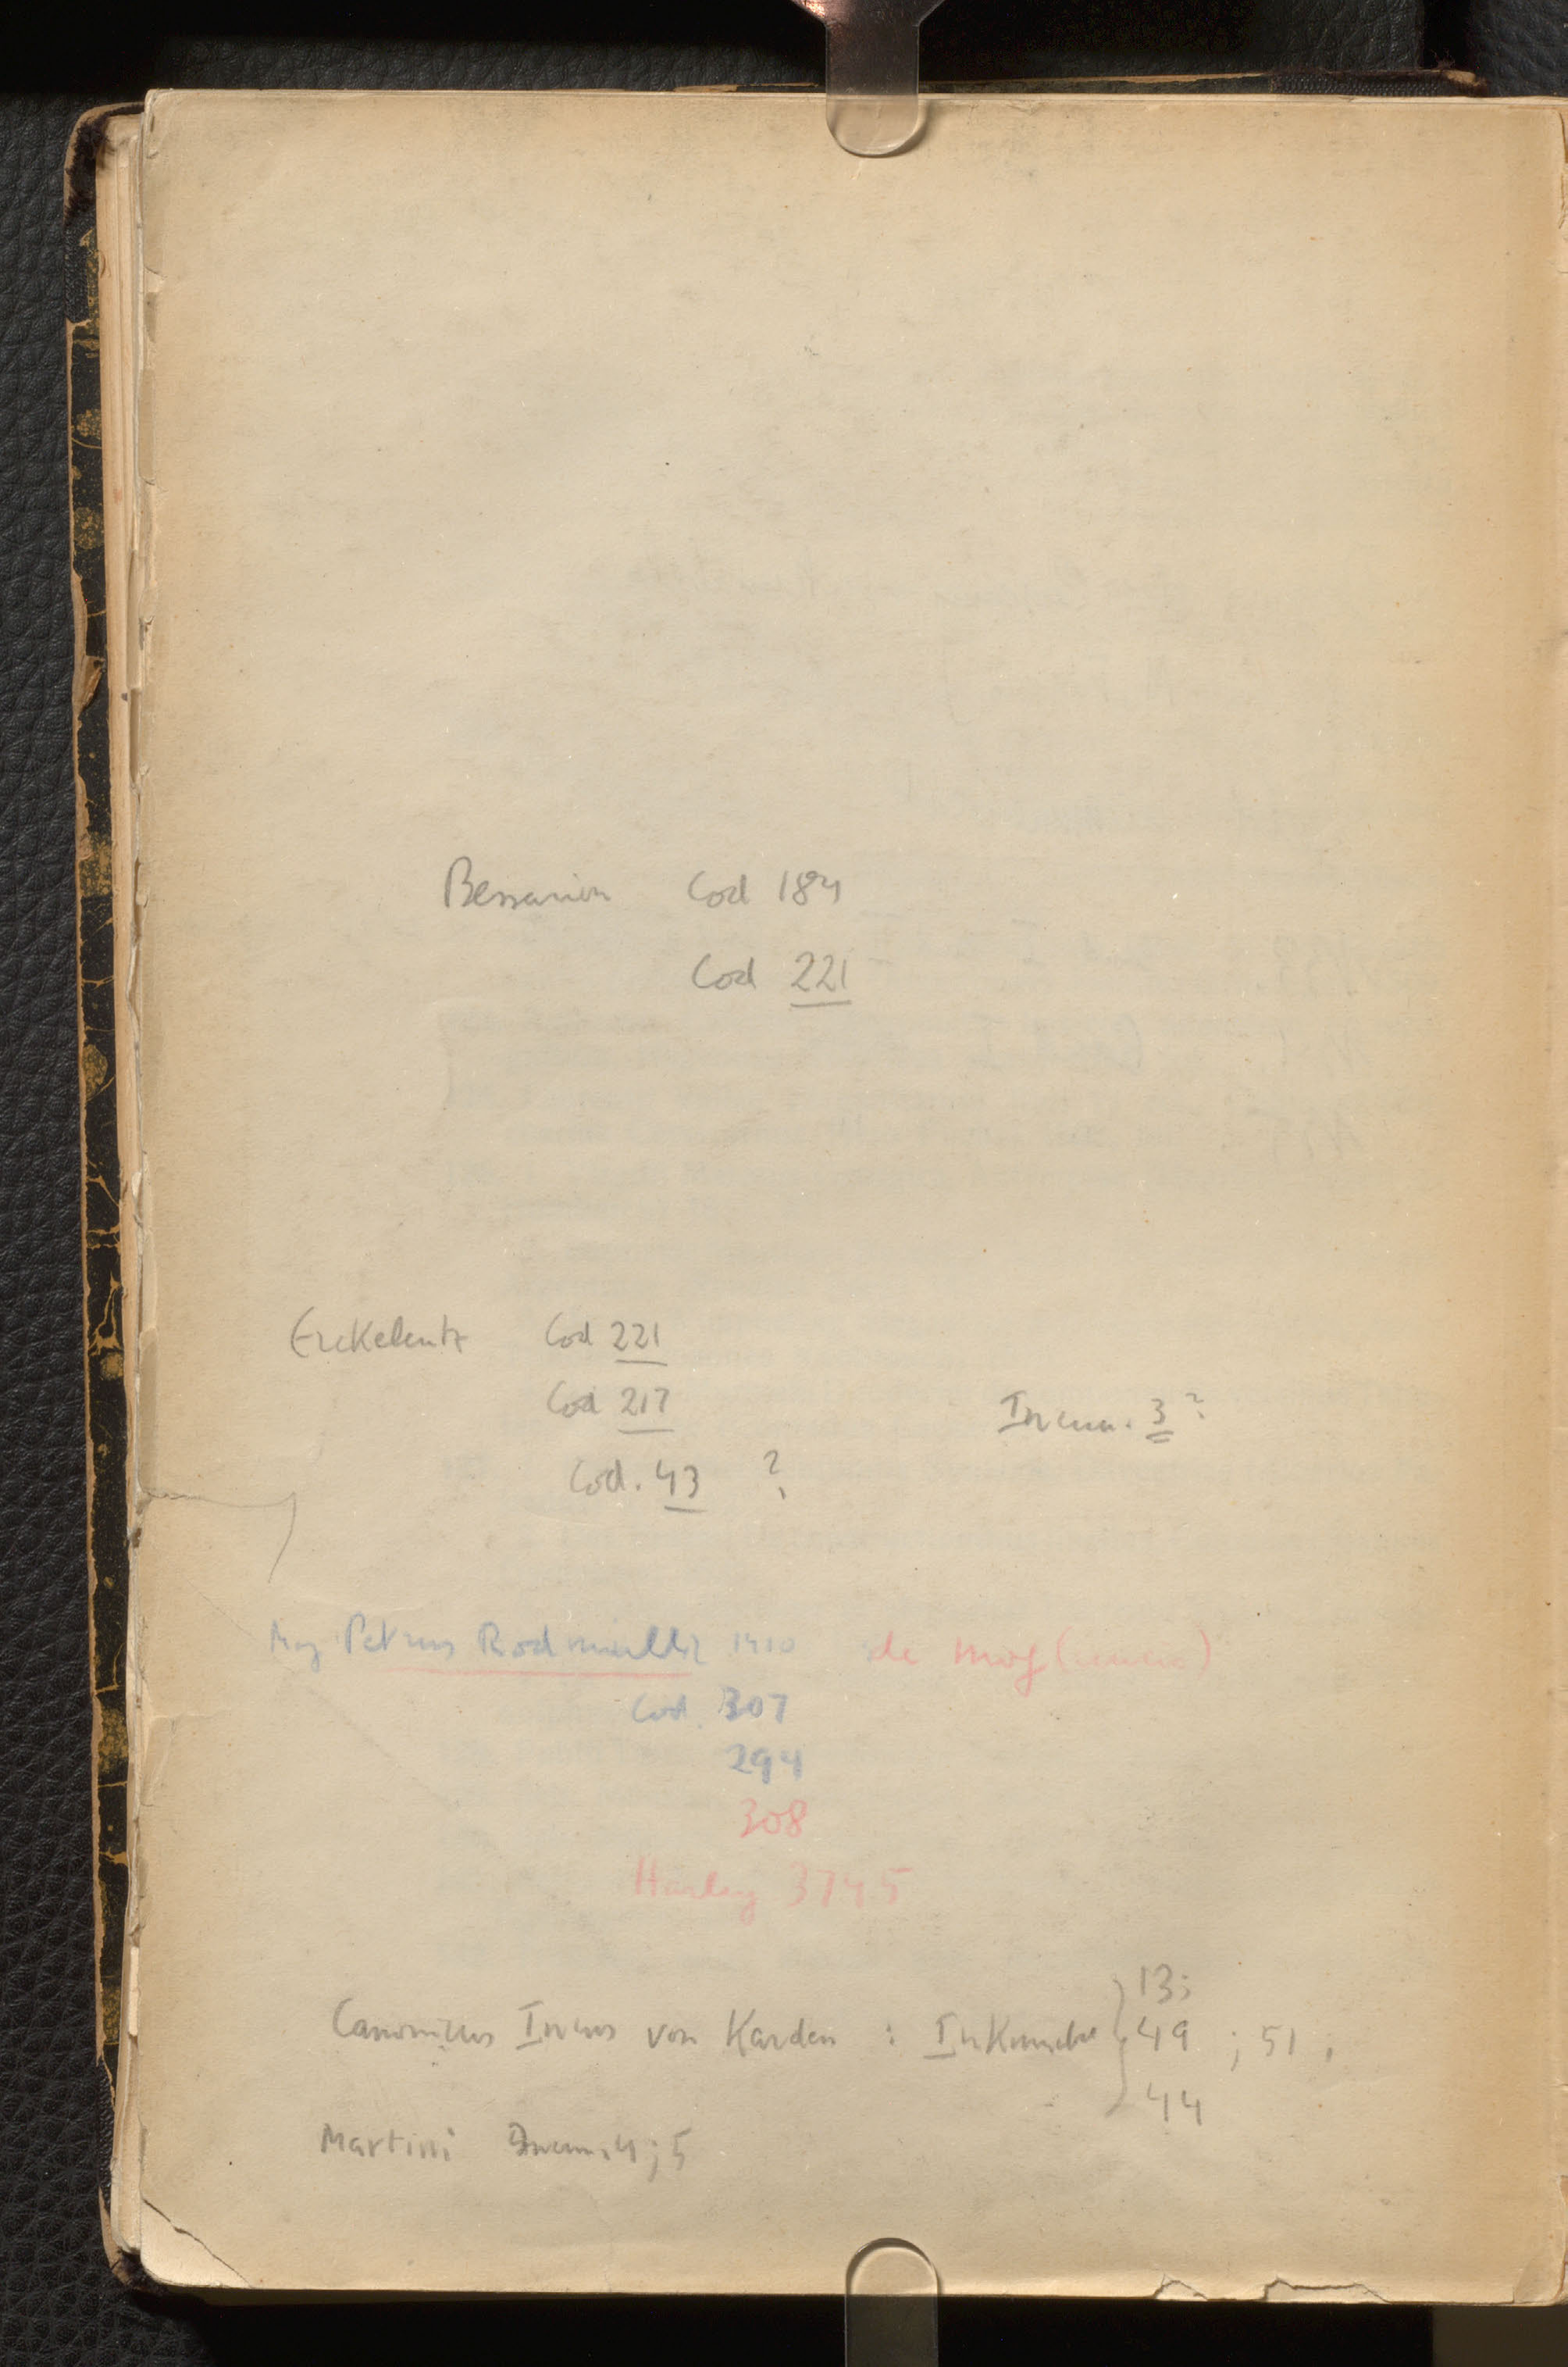 Bessarion Cod 184
Cod 221
Erckelentz Cod 221
Cod 217 Incun. 3?
Cod. 43 ?
Mag Petrus Rodmuller 1410 de Mog(uncia)
Cod. 307
294
308
Harley 3745
13;
Canonicus von Karden : Inkunabel 49 ; 51,
44
Martini Incun. 4; 5